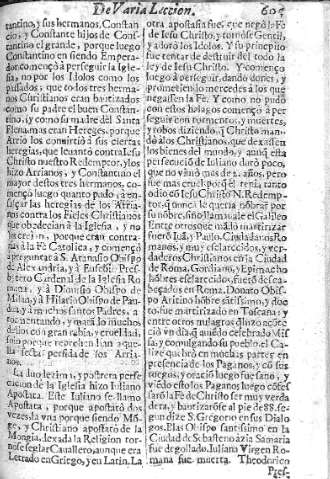 De Varia Leccion. 605
tantino, y sus hermanos, Constan
cio, y Constante hijos de Const-
antino el grande, porque luego
Constantino en siendo Empera-
dor començò a perseguir la Igle-
sia, no por los Idolos como los
passados, que todos tres herma-
nos Christianos eran bautizados
como su padre el buen Constan-
tino, y como su madre S. Santa
Elena, mas eran Hereges, porque
Arrio los convirtiò à sus ciertas
heregias, que levantò contra Iesu
Christo nuestro Redemptor, y los
hizo Arrianos, y Constantino el
mayor destos tres hermanos, co-
mençò luego quanto pudo, à en-
salçar las heregias de los Arria-
nos contra los Fieles Christianos
que obedecian à la Iglesia, y no
porque eran contra-
rias à la Fè Catolica, y començò
a perseguir a S. Atanasio Obispo
de Alexandria, y à Eusebio Pres-
bitero Cardenal de la Iglesia Ro
mana, y à Dionisio Obispo de
Milan, y à Hilario Obispo de Pau
dua, y à muchos santos Padres, a-
tormentando, y matando muchos
dellos con gran rabia, y crueldad,
solo porque reprehendian aque-
lla secta perdida de los Arria-
nos.
La duodecima, y postrera perse
cucion de la Iglesia hizo Iuliano
Apostata. Este Iuliano se llamo
Apostata, porque apostatò dos
vezes, la vna porque siendo Mon-
ge, y Christiano apostatò de la
Mongia, dexada la Religion tor-
nose seglar Cavallero, aunque era
Letrado en Griego, y en Latin. La
otra apostasia fue, que negò la Fè
de Iesu Christo, y tornose Gentil,
y adorò los Idolos. Y su principio
fue tentar de destruir del todo la
ley de Iesu Christo. Y començò
luego à perseguir, dando dones, y
prometiendo mercedes à los que
negassen la Fè. Y como no pudo
con estos halagos començò à per-
seguir con tormentos, y muertes,
y robos diziendo, q Christo man-
dò à los Christianos, que dexassen
los bienes del mundo, y aunq esta
persecucion de Iuliano durò poco,
que no vivio mas de 2. años, pero
fue mas cruel porq el tenia tanto
odio cō Iesu Christo N. Redemp-
tor, q nunca le queria nōbrar por
su nōbre, sino llamavale el Galileo
Entre otros q̄ mādò martirizar
fuerō Iuā, y Paulo, Ciudadanos Ro
manos, y muy esclarecidos, y ver-
daderos Christianos en la Ciudad
de Roma. Gordiano, y Epimacho
hōbres esclarecidos, fuerō desca-
beçados en Roma. Donato Obis-
po Aritino hōbre sātissimo, y doc
to, fue martirizado en Toscana: y
entre otros milagros dizen acōte
ciò vn dia q̄ quādo celebrado Mis-
sa, y comulgando su pueblo el Ca-
liz quebrò en muchas partes en
presencia de los Paganos, y cō sus
ruegos, y oraciō luego fue sano, y
viēdo esto los Paganos luego cōfes-
sarō la Fè de Christo ser muy verda
dera, y bautizarōse al pie de 88. se-
gun dize S. Gregorio en sus Dialo
gos. Elas Obispo santissimo en la
Ciudad de Sebaste no à Samaria
fue degollado. Iuliana Virgen Ro-
mana fue muerta. Theodorico
Pres-